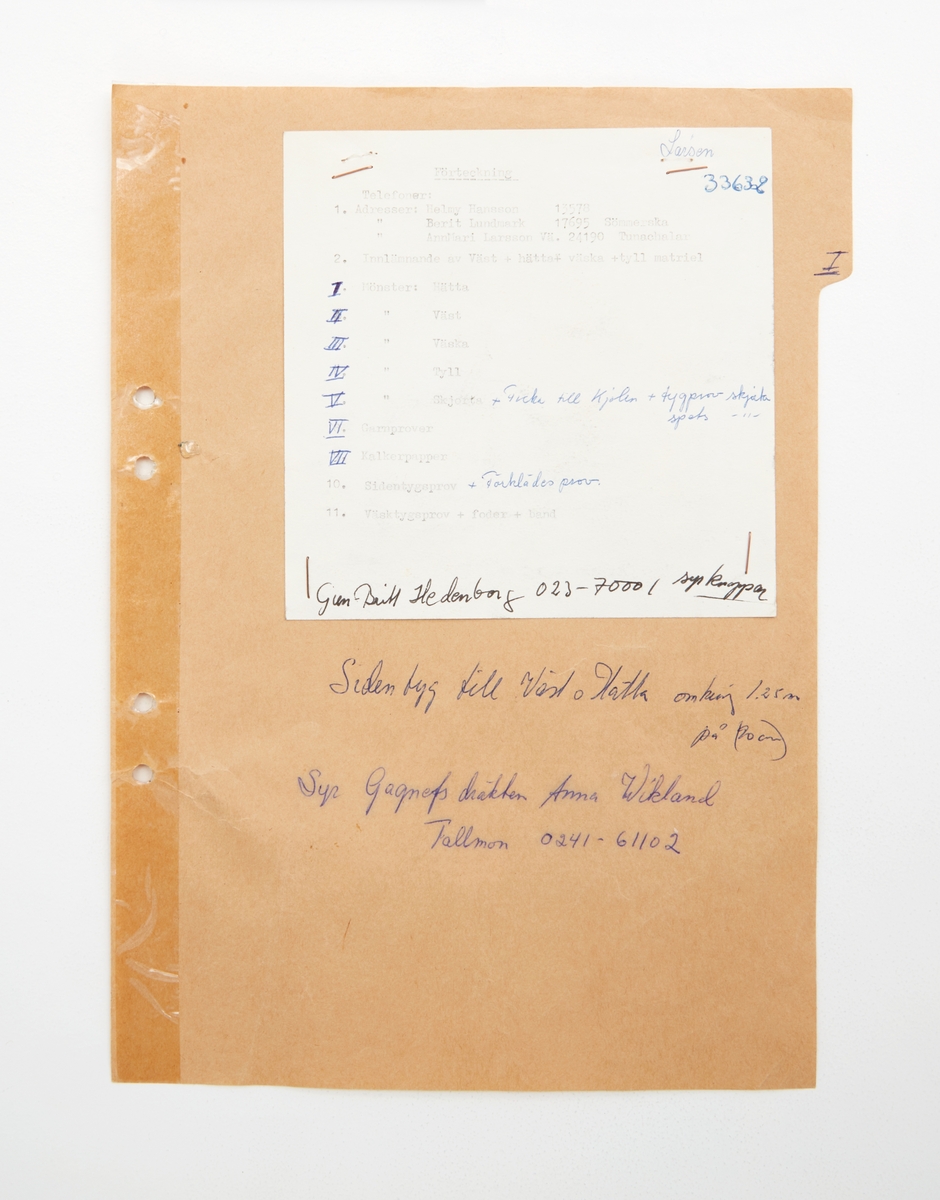 Larson
33632
Förteckning
Telefoner:
1. Adresser: Helmy Hansson 13578
" Berit Lundmark 17695
" AnnMari Larsson Vä. 24190
2. Innlämnande av Väst + hätta+ väska +tyll matriel
I. Mönster: Hätta
II. " Väst
III. " Väska
IV. " Tyll
V. " Skjorta + Ficka till Kjolen + tygprov skjorta
spets -"-
VI. Garnprover
VII Kalkerpapper
10. Sidentygsprov + Förklädes prov.
11. Väsktygsprov + foder + band
Gun-Britt Hedenborg 023-70001 syr knappar
I
Sidentyg till Väst o Hätta omkring 1.25 m
på (90 cm)
Syr Gagnefs dräkten Anna Wikland
Tallmon 0241-61102